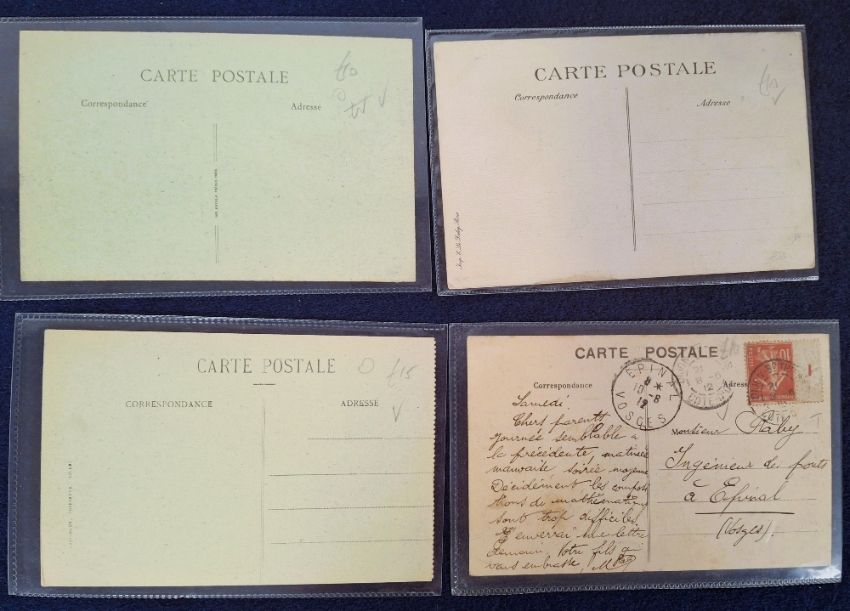 CARTE POSTALE
Correspondance
Adresse
£10
CARTE POSTALE
Correspondance
Adresse
£10
CARTE POSTALE
£15
CORRESPONDANCE
ADRESSE
CARTE POSTALE
£10
Correspondance
Adresse
EPINAL
8
10-8
12
VOSGES
10
Samedi.
Chers parents
Journée semblable à
la précédente, matinée
mauvaise soirée moyenne
Décidément les compositions de mathématiques
sont trop difficiles.
J'enverrai une lettre
demain. Votre fils qui
vous embrasse
Monsieur
Ingénieur des ponts
à Epinal
(Vosges).